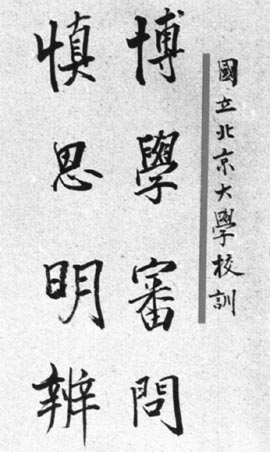 國立北京大學校訓
博學審問
慎思明辨